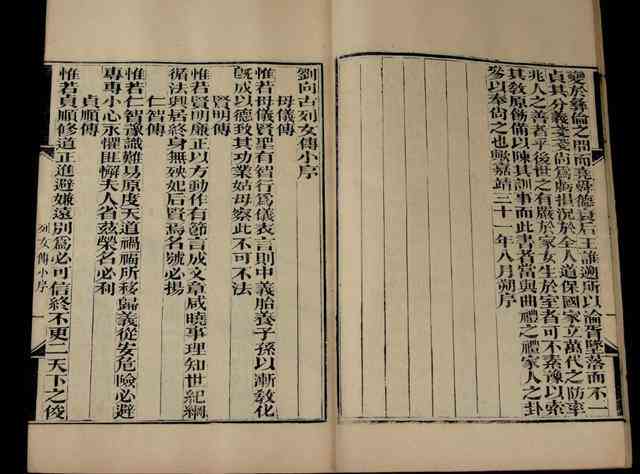 變於彝倫之間而堯舜德衰后王誰遡所以淪胥墜落而不一
貞其分義尙爲虧損況於全人道保國家立萬代之防率
兆人之善者乎後世之有嚴於家女生於室者可不素豫以索
其敎原飭備以陳其訓事而此書者當與曲禮之禮家人之卦
參以奉尙之也歟嘉靖三十一年八月朔序
劉向古列女傳小序
母儀傳
惟若母儀賢聖有智行爲儀表言則中義胎養子孫以漸敎化
旣成以德致其功業姑母察此不可不法
賢明傳
惟若賢明廉正以方動作有節言成文章咸曉事理知世紀綱
循法興居終身無殃妃后賢焉名號必揚
仁智傳
惟若仁智豫識難易原度天道禍福所移歸義從安危險必避
專專小心永懼匪懈夫人省茲榮名必利
貞順傳
惟若貞順修道正進避嫌遠別爲必可信終不更二天下之俊
列女傳小序